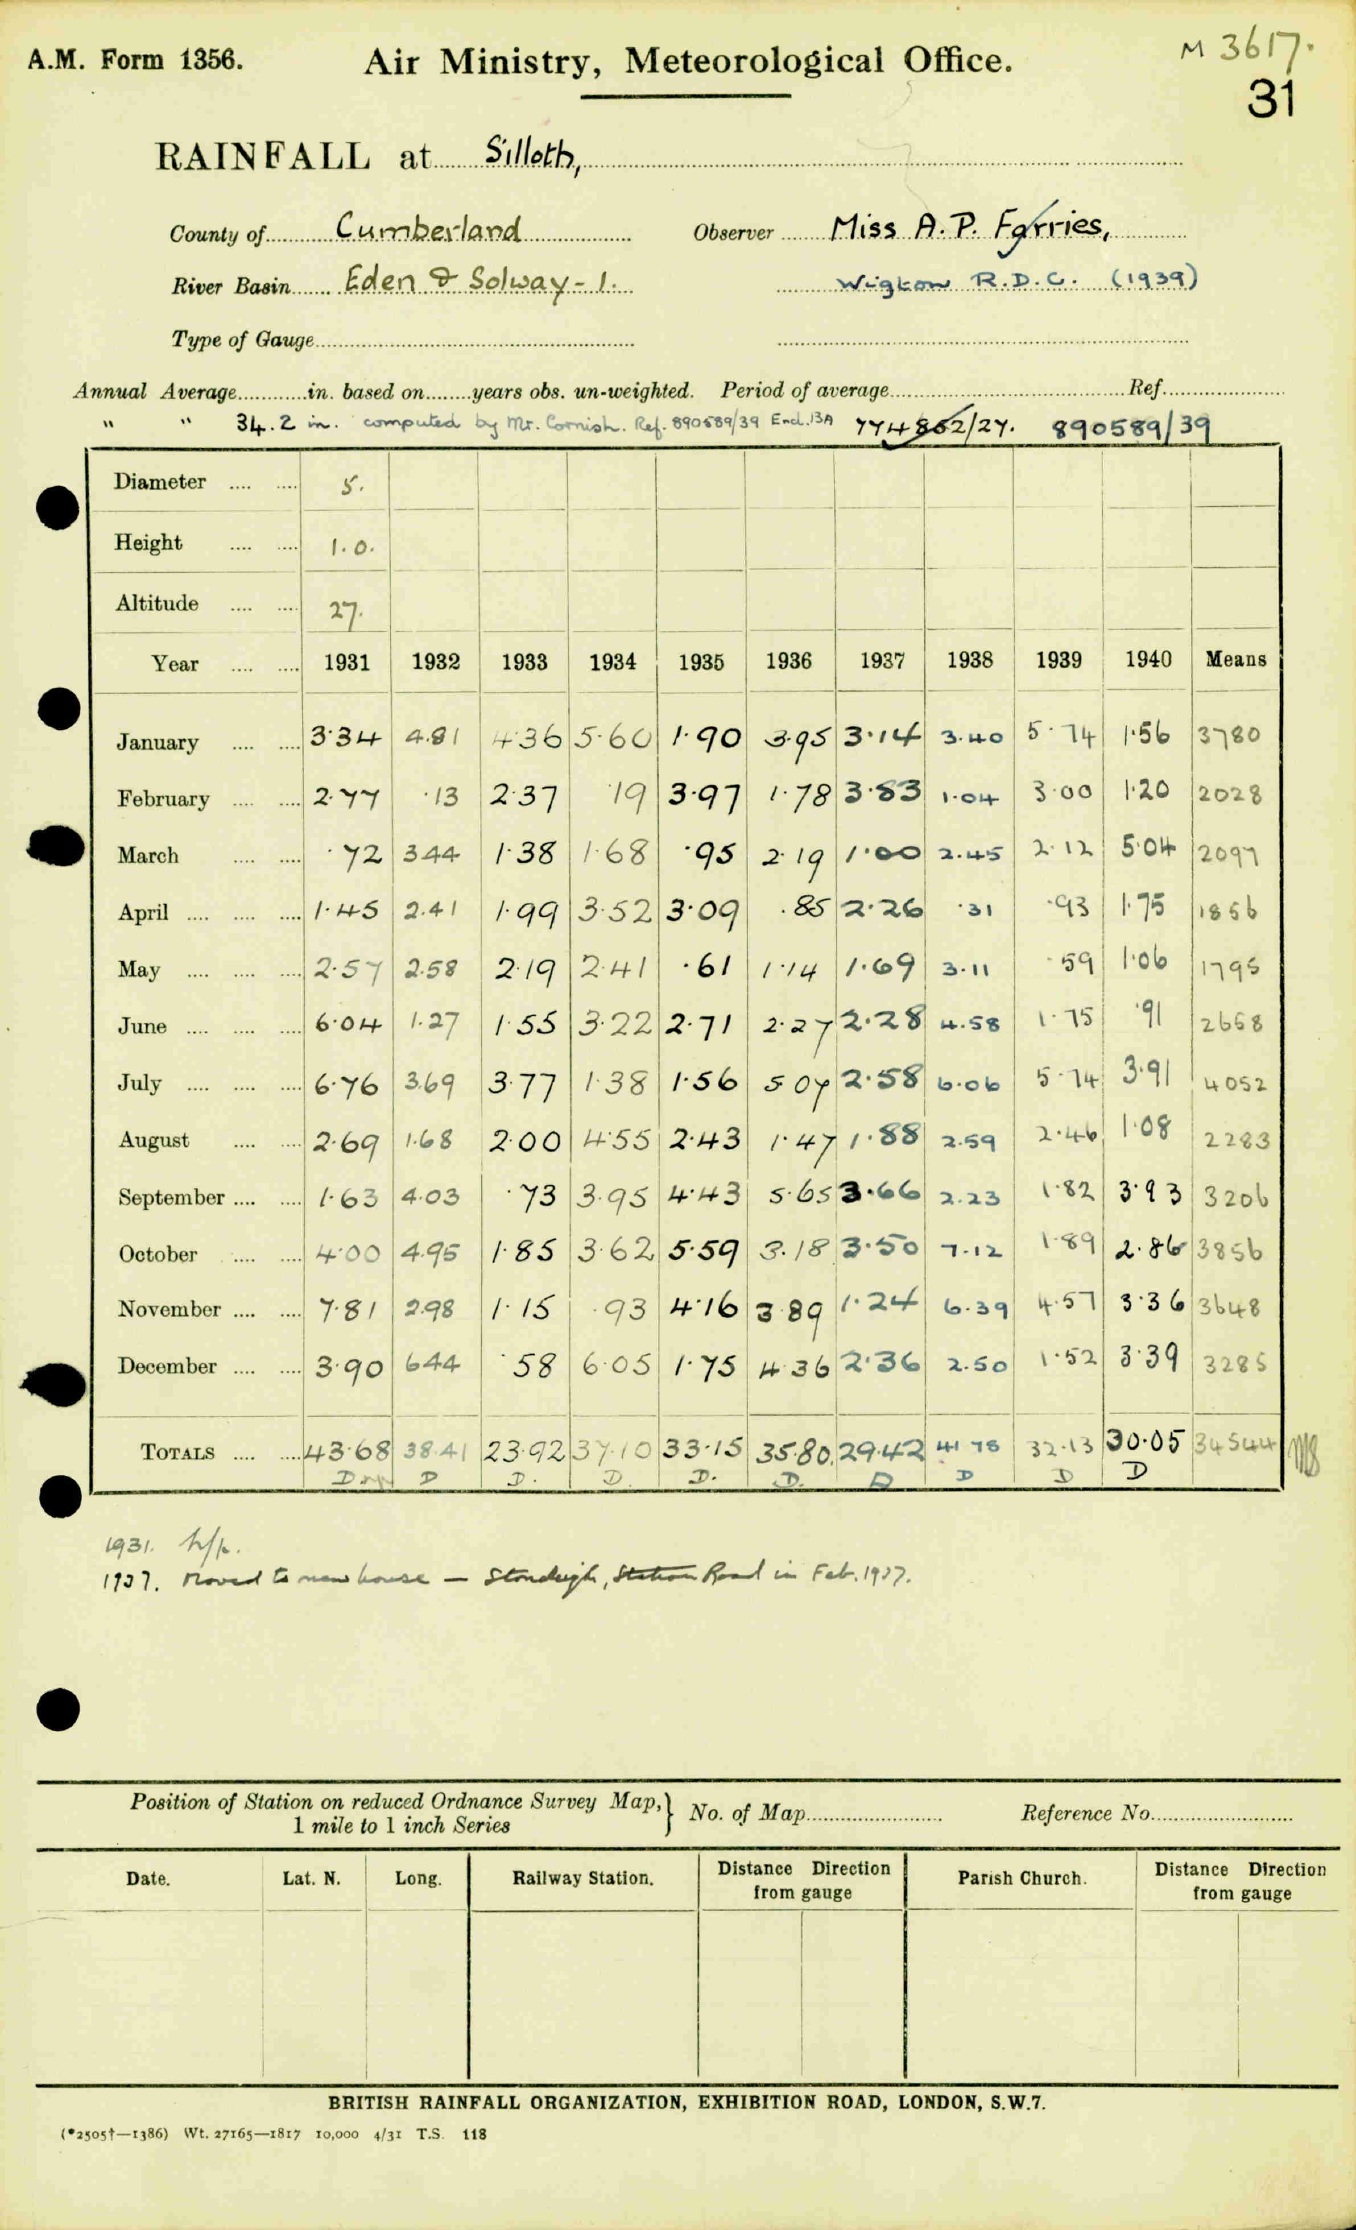 A.M. Form 1356.
Air Ministry, Meteorological Office.
M 3617.
31
RAINFALL at Silloth,
County of Cumberland Observer Miss A. P. Farries,
River Basin Eden & Solway - 1. Wigton R.D.C. (1939)
Type of Gauge
Annual Average in. based on years obs. un-weighted. Period of average Ref.
" " 34.2 in. computed by Mr. Cornish. Ref. 890589/39 Encl. 13A 774862/27. 890589/39
Diameter 5.
Height 1.0.
Altitude 27.
Year 1931 1932 1933 1934 1935 1936 1937 1938 1939 1940 Means
January 3.34 4.81 4.36 5.60 1.90 3.95 3.14 3.40 5.74 1.56 3780
February 2.77 .13 2.37 19 3.97 1.78 3.83 1.04 3.00 1.20 2028
March .72 344 1.38 1.68 .95 2.19 1.00 2.45 2.12 5.04 2097
April 1.45 2.41 1.99 3.52 3.09 .85 2.26 .31 .93 1.75 1856
May 2.57 2.58 2.19 2.41 .61 1.14 1.69 3.11 .59 1.06 1795
June 6.04 1.27 1.55 3.22 2.71 2.27 2.28 4.58 1.75 .91 2658
July 6.76 3.69 3.77 1.38 1.56 5 07 2.58 6.06 5.74 3.91 4052
August 2.69 1.68 2.00 4.55 2.43 1.47 1.88 2.59 2.46 1.08 2283
September 1.63 4.03 .73 3.95 4.43 5.65 3.66 2.23 1.82 3.93 3206
October 4.00 4.95 1.85 3.62 5.59 3.18 3.50 7.12 1.89 2.86 3856
November 7.81 2.98 1.15 .93 4.16 3 89 1.24 6.39 4.57 3.36 3648
December 3.90 644 .58 6.05 1.75 4.36 2.36 2.50 1.52 3.39 3285
TOTALS 43.68 38.41 23.92 37.10 33.15 35.80 29.42 41 78 32.13 30.05 34544
D D D. D. D. D. D D D D
1931.
1937. Moved to new house — Stoneleigh, Station Road in Feb. 1937.
Position of Station on reduced Ordnance Survey Map, 1 mile to 1 inch Series } No. of Map Reference No.
Date. Lat. N. Long. Railway Station. Distance Direction from gauge Parish Church. Distance Direction from gauge
BRITISH RAINFALL ORGANIZATION, EXHIBITION ROAD, LONDON, S.W.7.
(*2505†—1386) Wt. 27165—1817 10,000 4/31 T.S. 118